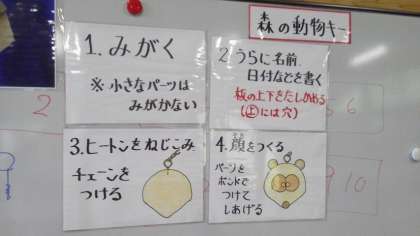 森の動物キー
1. みがく
※ 小さなパーツは
みがかない
2. うらに名前
日付などを書く
板の上下をたしかめる
(上には穴)
3. ヒートンをねじこみ
チェーンを
つける
4. 顔をつくる
パーツを
ボンドで
つけて
しあげる
2
6
9
10